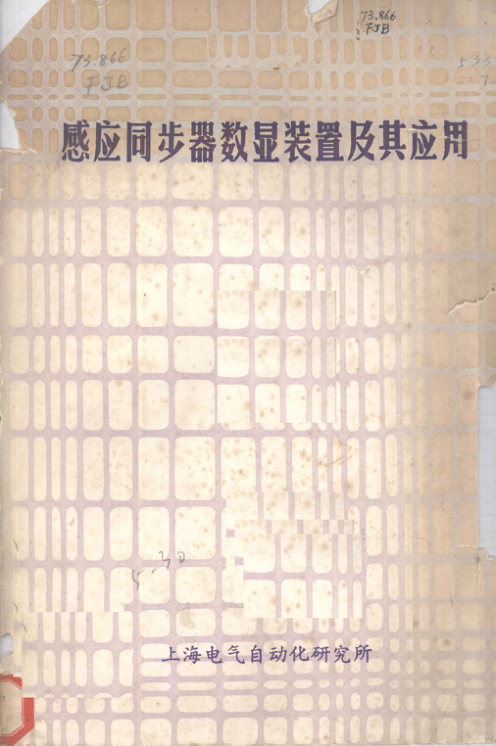 73.866
FJB
73.866
FJB
感应同步器数显装置及其应用
5.30
上海电气自动化研究所